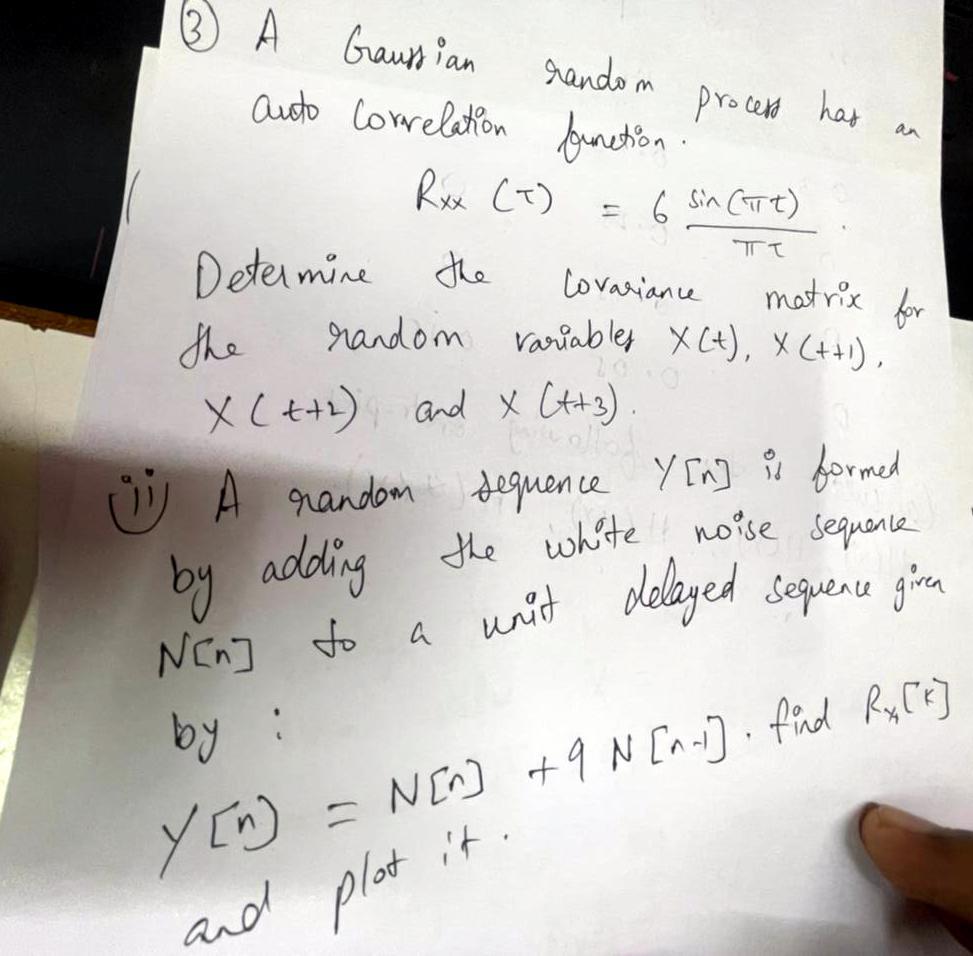 ③ A Gaussian random process has an
auto Correlation function.
Rxx (τ) = 6 sin(πt) / πτ
Determine the Covariance matrix for
the random variables X(t), X(t+1),
X(t+2) and X(t+3).
ii) A random sequence Y[n] is formed
by adding the white noise sequence
N[n] to a unit delayed sequence given
by :
Y[n] = N[n] + 9 N[n-1]. find Rx[k]
and plot it.